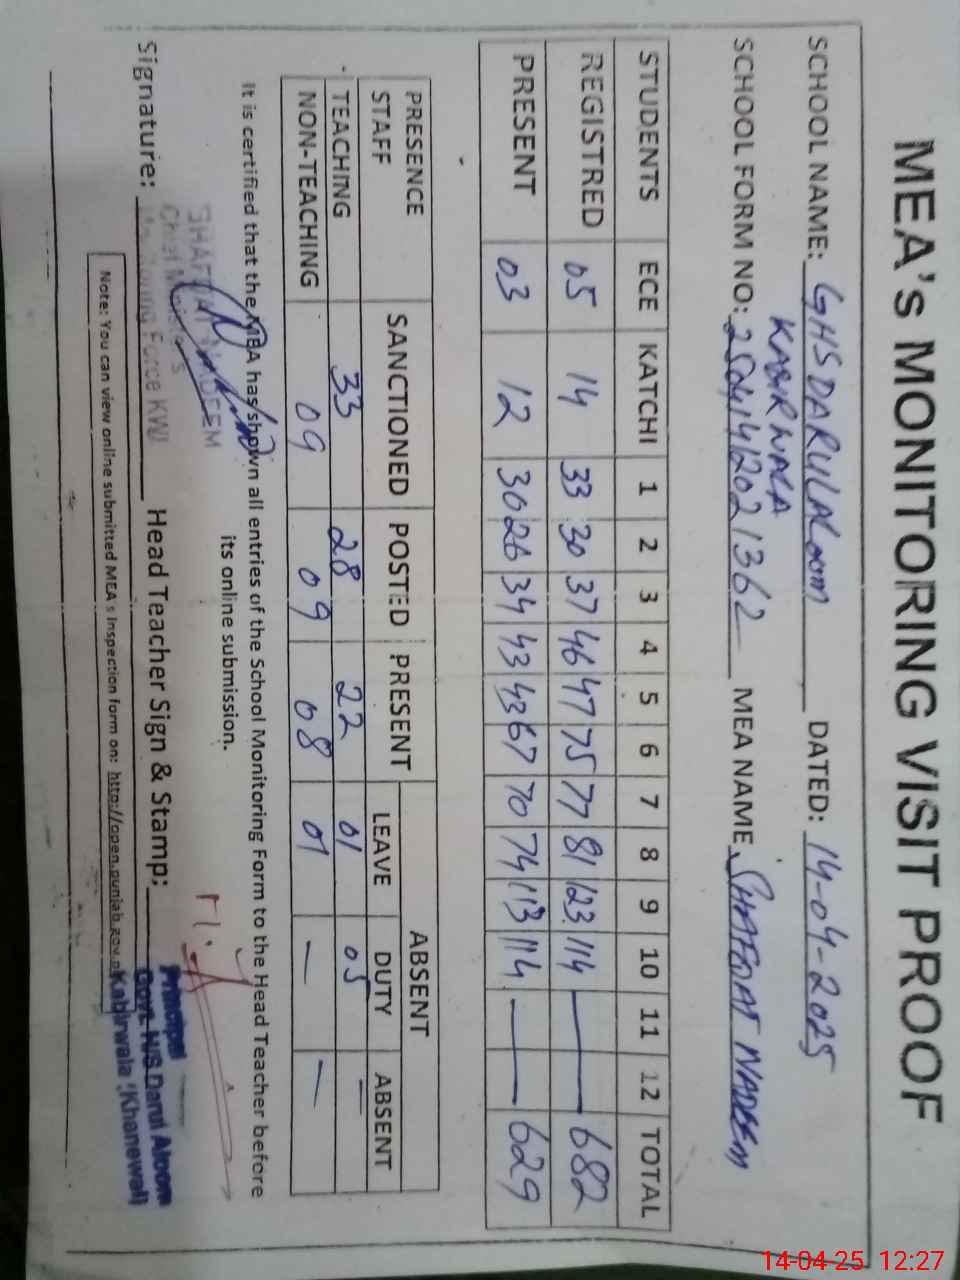 MEA's MONITORING VISIT PROOF
SCHOOL NAME: GHS DARUL ULoom DATED: 14-04-2025
SCHOOL FORM NO: MEA NAME SHAFQAT NADEEM
STUDENTS ECE KATCHI 1 2 3 4 5 6 7 8 9 10 11 12 TOTAL
REGISTRED 05 14 33 30 37 46 47 75 77 81 123 114 — 682
PRESENT 03 12 30 26 34 43 43 67 70 74 113 114 — 629
PRESENCE SANCTIONED POSTED PRESENT ABSENT
STAFF LEAVE DUTY ABSENT
TEACHING 33 28 22 01 05 —
NON-TEACHING 09 09 08 01 — —
It is certified that the MEA has shown all entries of the School Monitoring Form to the Head Teacher before
its online submission.
Signature: Head Teacher Sign & Stamp:
Chief Minister's
Monitoring Force KWI
Principal
Govt. H/S Darul Aloom
Kabirwala (Khanewal)
Note: You can view online submitted MEA s Inspection form on: http://open.punjab.gov.p
14-04-25 12:27